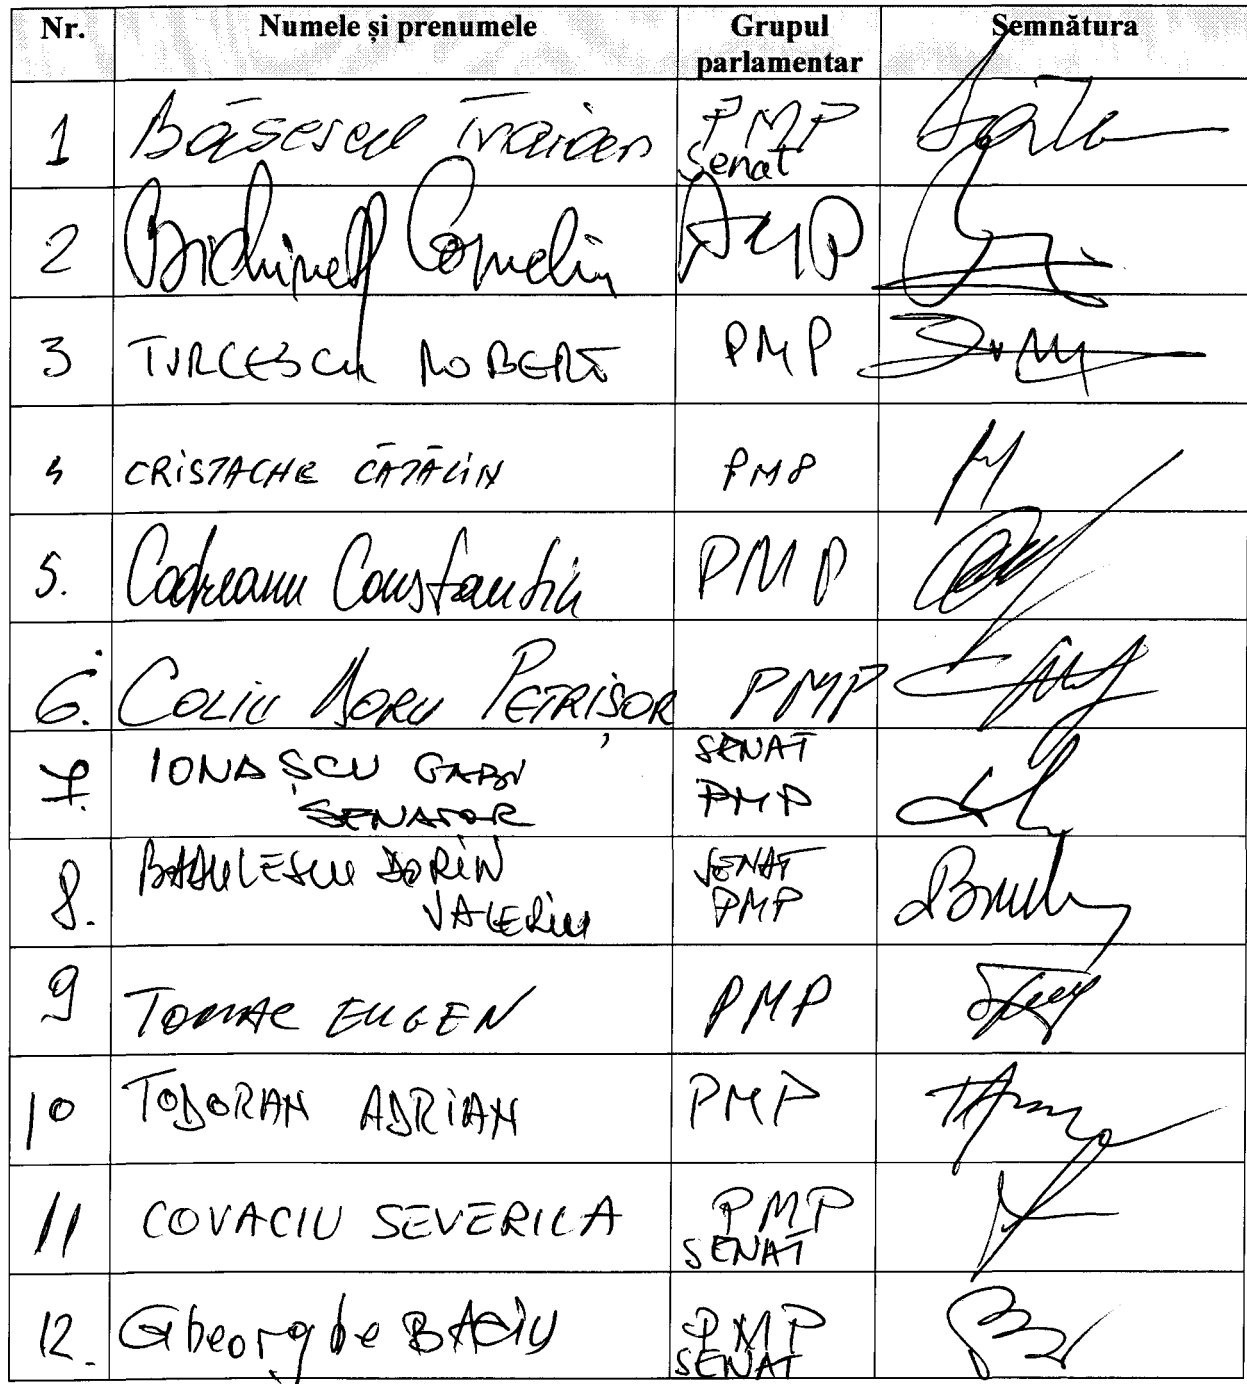 Nr. Numele și prenumele Grupul parlamentar Semnătura
1 Băsescu Traian PMP Senat
2 Bichineț Corneliu PMP
3 TURCESCU ROBERT PMP
4 CRISTACHE CĂTĂLIN PMP
5. Codreanu Constantin PMP
6. COLIU DORU PETRIȘOR PMP
7. IONAȘCU GABI SENATOR SENAT PMP
8. BĂDULESCU DORIN VALERIU SENAT PMP
9 TOMAC EUGEN PMP
10 TODORAN ADRIAN PMP
11 COVACIU SEVERICA PMP SENAT
12. Gheorghe BACIU PMP SENAT